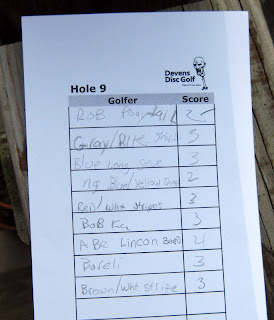 Devens
Disc Golf
Hole 9
Golfer Score
Rob Ponytail 2
Gray/Blue Shirt 3
Blue Long 3
Blue/Yellow 2
Red/Wht stripes 3
BoB 3
ABe Lincon 4
3
Brown/Wht Stripe 3